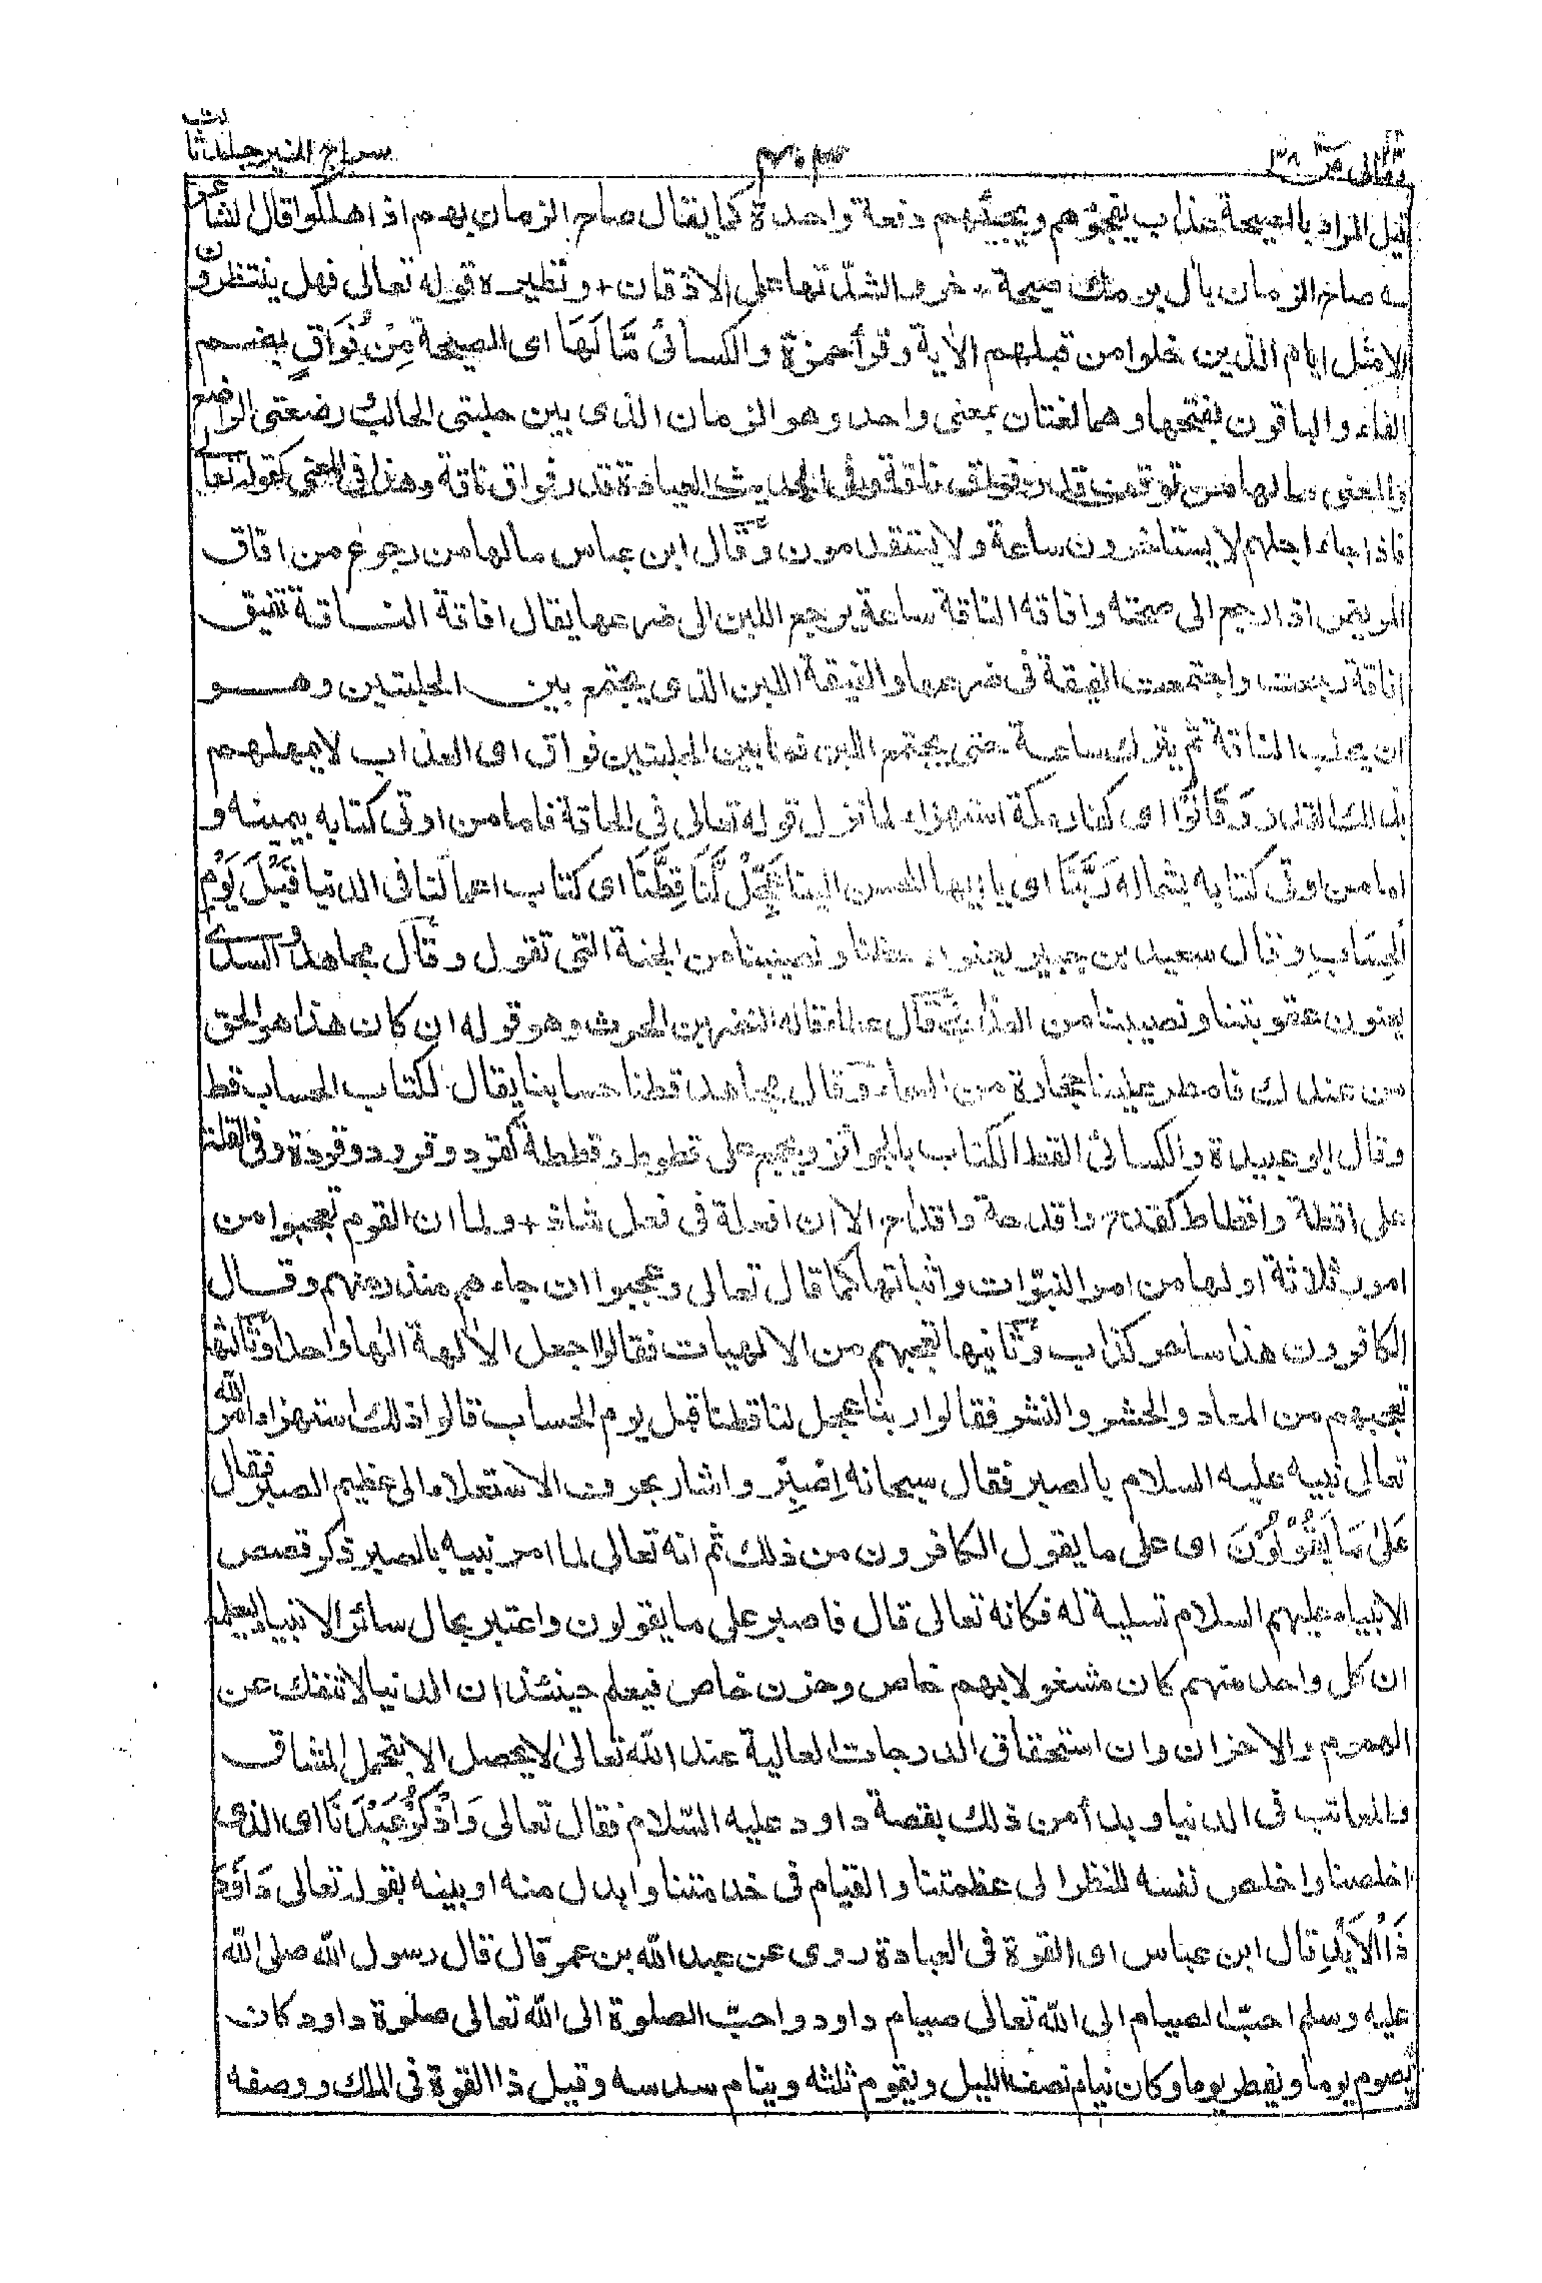 سراج المنير جلد ثالث
٤٠٣
تعالى ص ٣٨
قيل المراد بالصيحة عذاب يفجؤهم ويجيئهم دفعة واحدة كما يقال صاح الزمان بهم اذا هلكوا قال الشاعر
صاح الزمان بآل برمك صيحة خروا لشدتها على الاذقان + ونظيره قوله تعالى فهل ينتظرون
الا مثل ايام الذين خلوا من قبلهم الآية وقرأ حمزة والكسائى مَّا لَهَا اى الصيحة مِنْ فُوَاقٍ بضم
الفاء والباقون بفتحها وهما لغتان بمعنى واحد وهو الزمان الذى بين حلبتى الحالب ورضعتى الراضع
والمعنى مالها من توقف قدر فواق ناقة وفى الحديث العيادة قدر فواق ناقة وهذا فى المعنى كقوله تعالى
فاذا جاء اجلهم لا يستاخرون ساعة ولا يستقدمون وقال ابن عباس مالها من رجوع من افاق
المريض اذا رجع الى صحته وافاقه الناقة ساعة يرجع اللبن الى ضرعها يقال افاقة الناقة تفيق
افاقة رجعت واجتمعت الفيقة فى ضرعها والفيقة اللبن الذى يجتمع بين الحلبتين وهو
ان يحلب الناقة ثم يترك ساعة حتى يجتمع اللبن فما بين الحلبتين فواق اى العذاب لا يمهلهم
بذلك القدر وَقَالُوْا اى كفار مكة استهزاء لما نزل قوله تعالى فى الحاقة فاما من اوتى كتابه بيمينه و
اما من اوتى كتابه بشماله رَبَّنَا اى يا ايها المحسن الينا عَجِّلْ لَّنَا قِطَّنَا اى كتاب اعمالنا فى الدنيا قَبْلَ يَوْمِ
الْحِسَابِ وقال سعيد بن جبير يعنون حظنا ونصيبنا من الجنة التى تقول وقال مجاهد والسدى
يعنون عقوبتنا ونصيبنا من العذاب قال عطاء قاله النضر بن الحرث وهو قوله ان كان هذا هو الحق
من عندك فامطر علينا حجارة من السماء وقال مجاهد قطنا حسابنا يقال لكتاب الحساب قط
وقال ابو عبيدة والكسائى القط الكتاب بالجوائز ويجمع على قطوط وقططة كقرد وقرود وقردة وفى القلة
على اقطة واقطاط كقدح واقدحة واقداح الا ان افعلة فى فعل شاذ + ولما ان القوم تعجبوا من
امور ثلاثة اولها من امر النبوّات واثباتها كما قال تعالى وعجبوا ان جاءهم منذر منهم وقال
الكافرون هذا ساحر كذاب وثانيها تعجبهم من الالهيات فقالوا اجعل الآلهة الها واحدا وثالثها
تعجبهم من المعاد والحشر والنشر فقالوا ربنا عجل لنا قطنا قبل يوم الحساب قالوا ذلك استهزاء امر الله
تعالى نبيه عليه السلام بالصبر فقال سبحانه اِصْبِرْ واشار بحرف الاستعلاء الى عظيم الصبر فقال
عَلٰى مَا يَقُوْلُوْنَ اى على ما يقول الكافرون من ذلك ثم انه تعالى لما امر نبيه بالصبر ذكر قصص
الانبياء عليهم السلام تسلية له فكانه تعالى قال فاصبر على ما يقولون واعتبر بحال سائر الانبياء ليعلم
ان كل واحد منهم كان مشغولا بهم خاص وحزن خاص فيعلم حينئذ ان الدنيا لا تنفك عن
الهموم والاحزان وان استحقاق الدرجات العالية عند الله تعالى لا يحصل الا بتحمل المشاق
والمتاعب فى الدنيا وبدأ من ذلك بقصة داود عليه السّلام فقال تعالى وَاذْكُرْ عَبْدَنَا اى الذى
اخلصنا واخلص نفسه للنظر الى عظمتنا والقيام فى خدمتنا وابدل منه او بينه بقوله تعالى دَاوٗدَ
ذَا الْاَيْدِ قال ابن عباس اى القوة فى العبادة روى عن عبد الله بن عمر قال قال رسول الله صلى الله
عليه وسلم احبّ الصيام الى الله تعالى صيام داود واحبّ الصلوة الى الله تعالى صلوة داود كان
يصوم يوما ويفطر يوما وكان ينام نصف الليل ويقوم ثلثه وينام سدسه وقيل ذا القوة فى الملك ووصفه